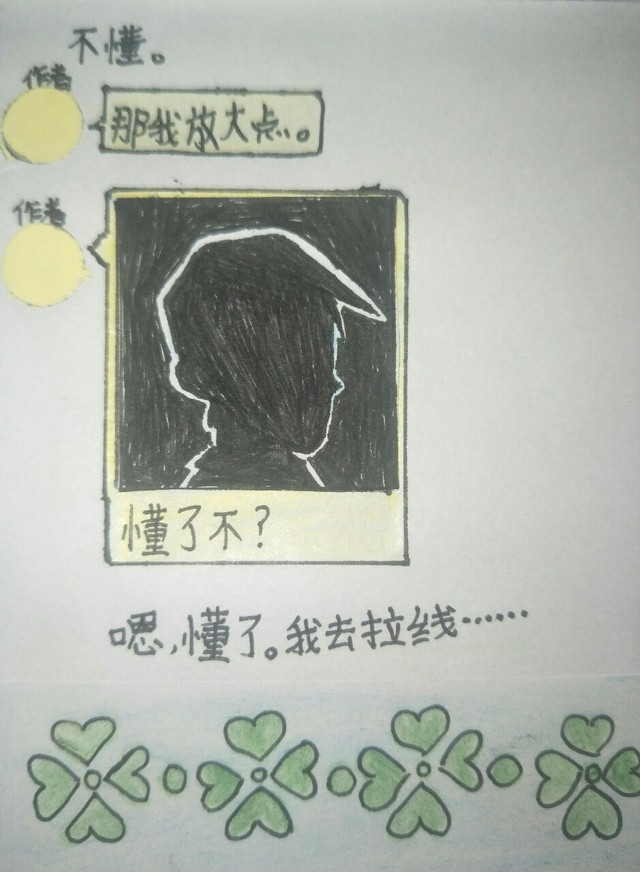 不懂。
作者
那我放大点..。
作者
懂了不？
嗯,懂了。我去拉线……